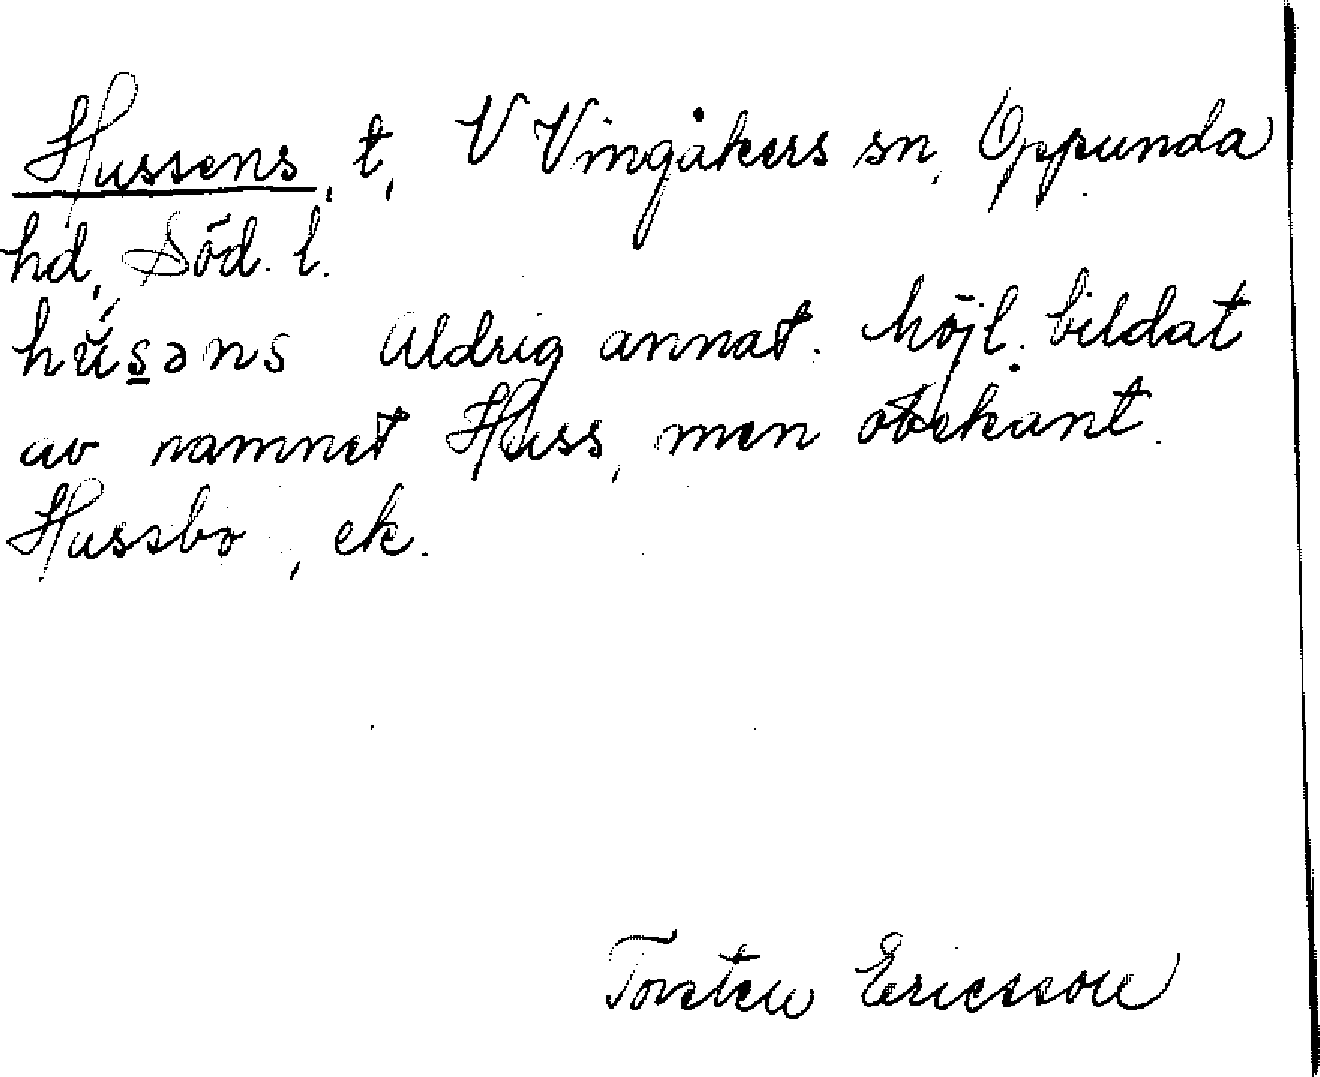 Hussens, t, V Vingåkers sn, Oppunda
hd, Söd. l.
hú̆s̲əns Aldrig annat. Möjl. bildat
av namnet Huss, men obekant.
Hussbo, ek.
Torsten Ericsson